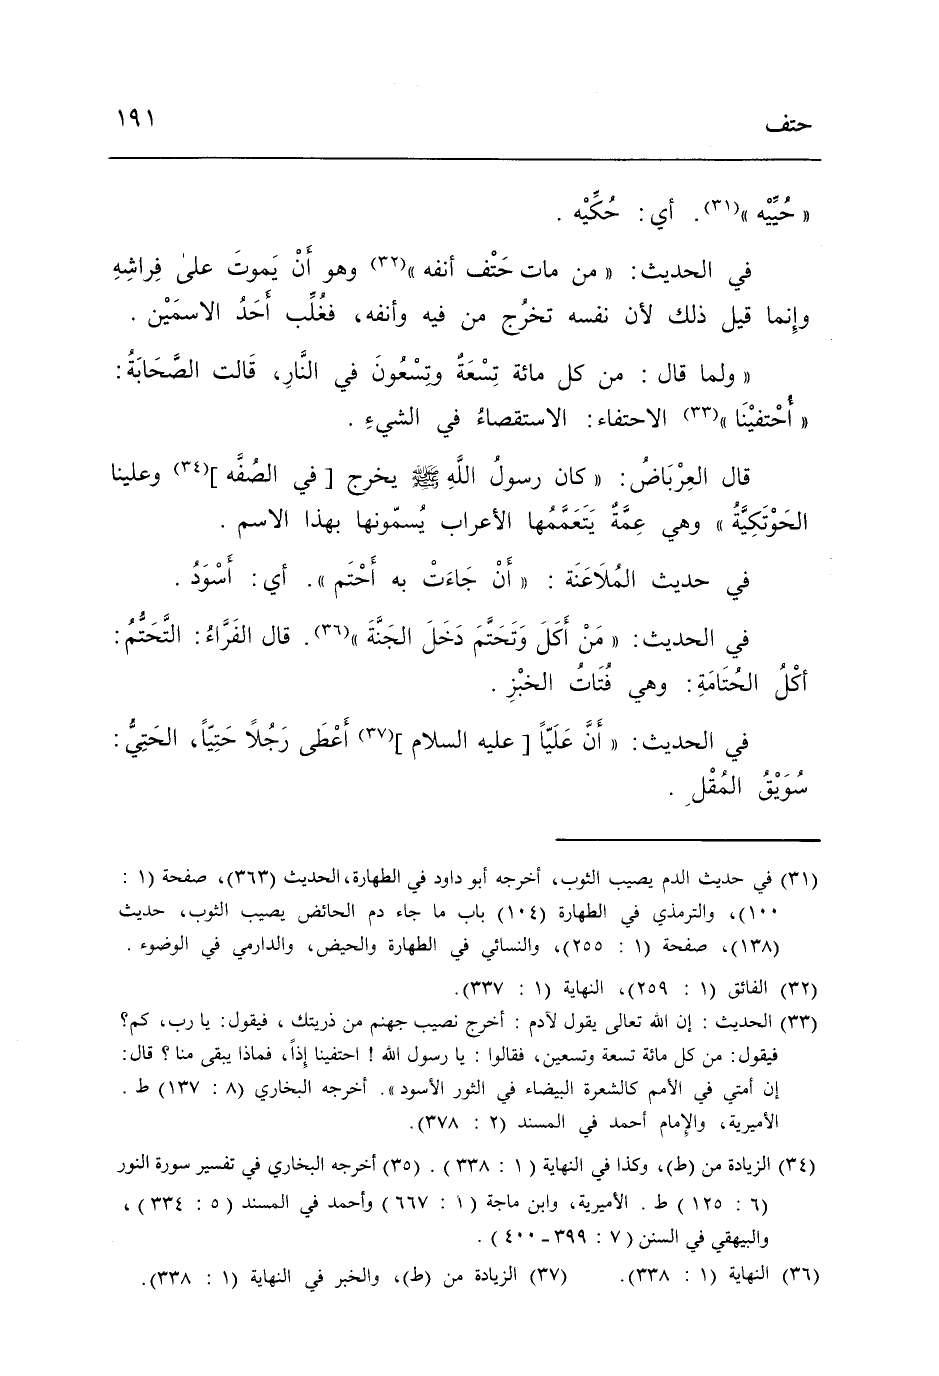 حتف ١٩١
« حُتِّيْه »(٣١). أي: حُكِّيْه .
في الحديث: « من مات حَتْف أنفه »(٣٢) وهو أَنْ يَموتَ علىٰ فِراشِهِ
وإِنما قيل ذلك لأن نفسه تخرُج من فيه وأنفه، فغُلِّب أَحَدُ الاسمَيْن .
« ولما قال : من كل مائة تِسْعَةٌ وتِسْعُونَ في النَّارِ، قَالت الصَّحَابَةُ:
« أُحْتفيْنَا »(٣٣) الاحتفاء: الاستقصاءُ في الشيءِ .
قال العِرْبَاضُ: « كان رسولُ اللَّهِ ﷺ يخرج [ في الصُفَّه ](٣٤) وعلينا
الحَوْتَكِيَّةُ » وهي عِمَّةٌ يَتَعَمَّمُها الأعراب يُسمّونها بهذا الاسم .
في حديث المُلاَعَنَة : « أَنْ جَاءَتْ به أَحْتَم ». أي: أَسْوَدُ .
في الحديث: « مَنْ أَكَلَ وَتَحَتَّمَ دَخَلَ الجَنَّةَ »(٣٦). قال الفَرَّاءُ: التَّحَتُّمُ:
أكْلُ الحُتَامَةِ: وهي فُتَاتُ الخبْزِ .
في الحديث: « أَنَّ عَلَيّاً [ عليه السلام ](٣٧) أَعْطَى رَجُلاً حَتِيّاً، الحَتِيُّ:
سُوَيْقُ المُقْلِ .
(٣١) في حديث الدم يصيب الثوب، أخرجه أبو داود في الطهارة، الحديث (٣٦٣)، صفحة (١ :
١٠٠)، والترمذي في الطهارة (١٠٤) باب ما جاء دم الحائض يصيب الثوب، حديث
(١٣٨)، صفحة (١ : ٢٥٥)، والنسائي في الطهارة والحيض، والدارمي في الوضوء .
(٣٢) الفائق (١ : ٢٥٩)، النهاية (١ : ٣٣٧).
(٣٣) الحديث : إن الله تعالى يقول لآدم : أخرج نصيب جهنم من ذريتك ، فيقول: يا رب، كم؟
فيقول: من كل مائة تسعة وتسعين، فقالوا : يا رسول الله ! احتفينا إذاً، فماذا يبقى منا ؟ قال:
إن أمتي في الأمم كالشعرة البيضاء في الثور الأسود ». أخرجه البخاري (٨ : ١٣٧) ط .
الأميرية، والإمام أحمد في المسند (٢ : ٣٧٨).
(٣٤) الزيادة من (ط)، وكذا في النهاية ( ١ : ٣٣٨ ) . (٣٥) أخرجه البخاري في تفسير سورة النور
(٦ : ١٢٥ ) ط . الأميرية، وابن ماجة ( ١ : ٦٦٧ ) وأحمد في المسند ( ٥ : ٣٣٤ ) ،
والبيهقي في السنن ( ٧ : ٣٩٩ - ٤٠٠ ) .
(٣٦) النهاية (١ : ٣٣٨). (٣٧) الزيادة من (ط)، والخبر في النهاية (١ : ٣٣٨).